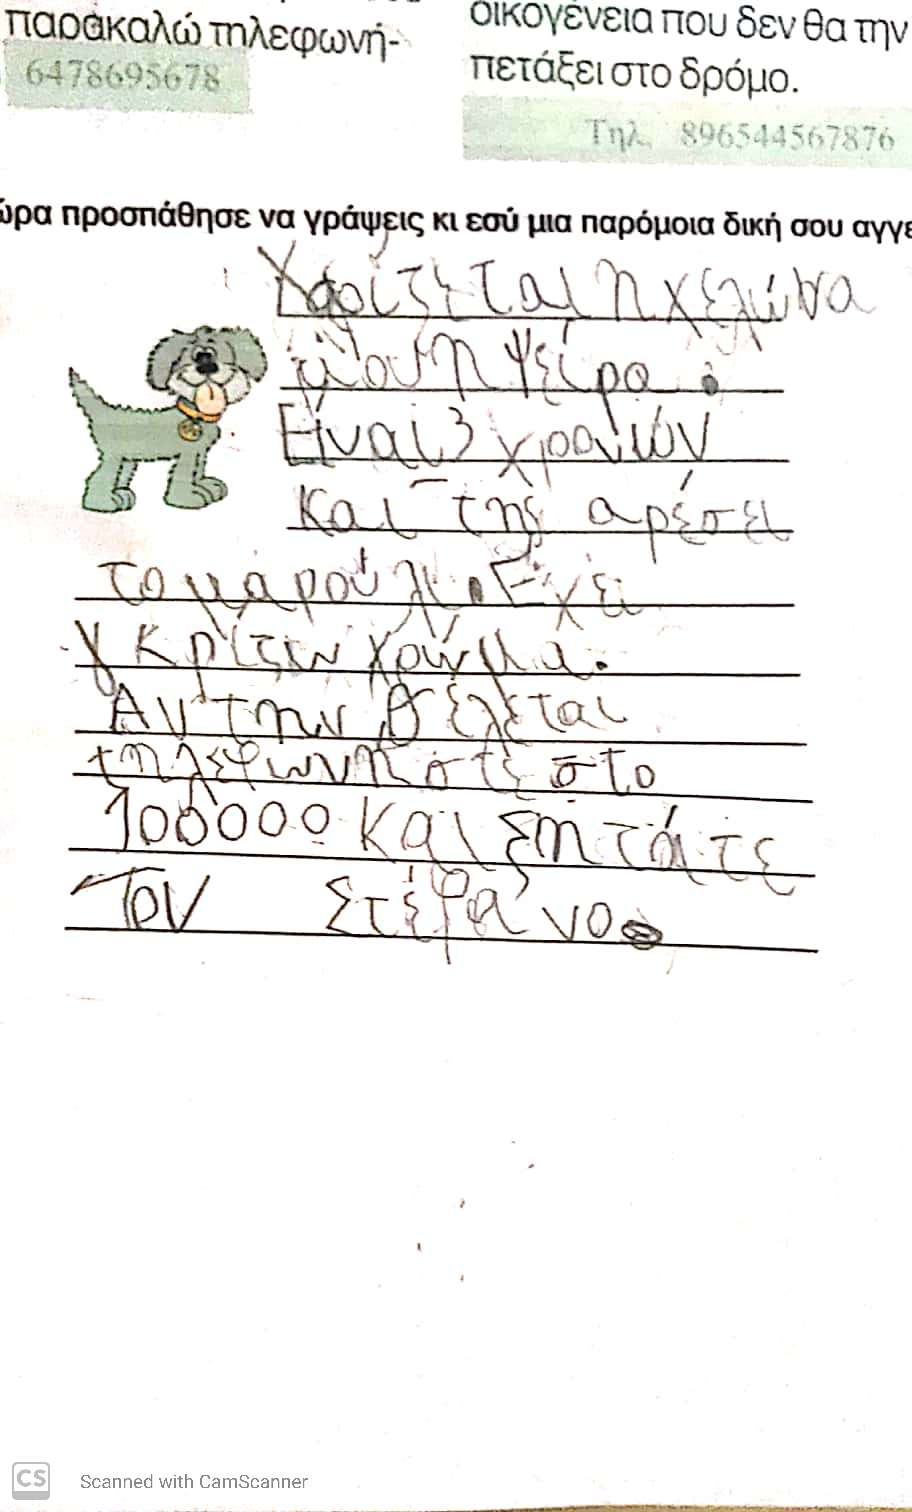 παρακαλώ τηλεφωνή-
6478695678
οικογένεια που δεν θα την
πετάξει στο δρόμο.
Τηλ. 896544567876
ώρα προσπάθησε να γράψεις κι εσύ μια παρόμοια δική σου αγγε
Χαρίζεται η χελώνα
μου η ψείρα.
Είναι 3 χρονιών
και της αρέσει
το μαρούλι. Έχει
γκρίζων χρώμα.
Αν την θέλεται
τηλεφωνήστε στο
100000 και ζητάτε
τον Στέφανο.
CS Scanned with CamScanner